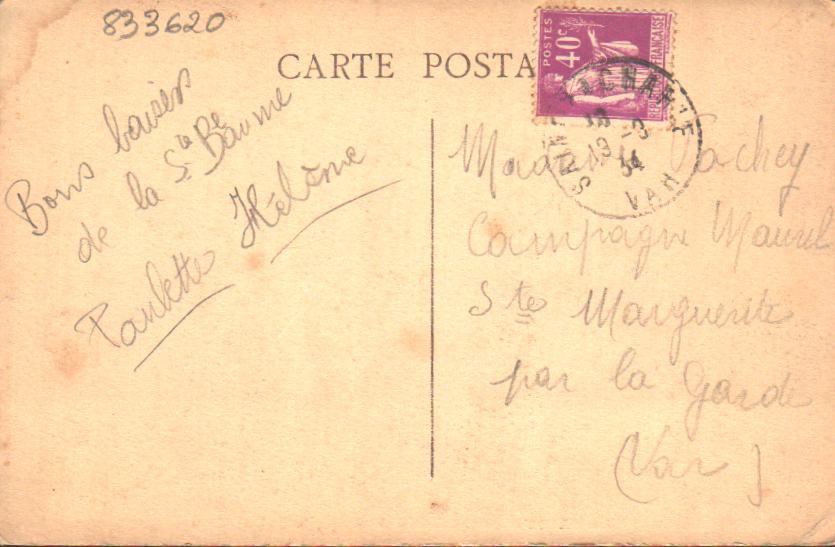 833620
CARTE POSTA
POSTES
40c
REPUBLIQUE FRANÇAISE
VAR
34
Bons baisers
de la Ste Baume
Paulette Hélène
Vachey
Campagne Maurel
Ste Marguerite
par la Garde
(Var)